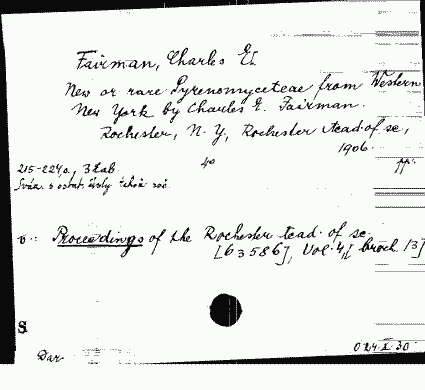 Fairman, Charles E.
New or rare Pyrenomyceteae from Western
New York by Charles E. Fairman.
Rochester, N. Y., Rochester Acad. of sc,
1906.
215-224 o., 3 tab. 4o pp.
Sváz. s ostat. úvly. téhož roč.
v.: Proceedings of the Rochester Acad. of sc.
[63586], Vol. 4, [broch. 13]
S
Dar.